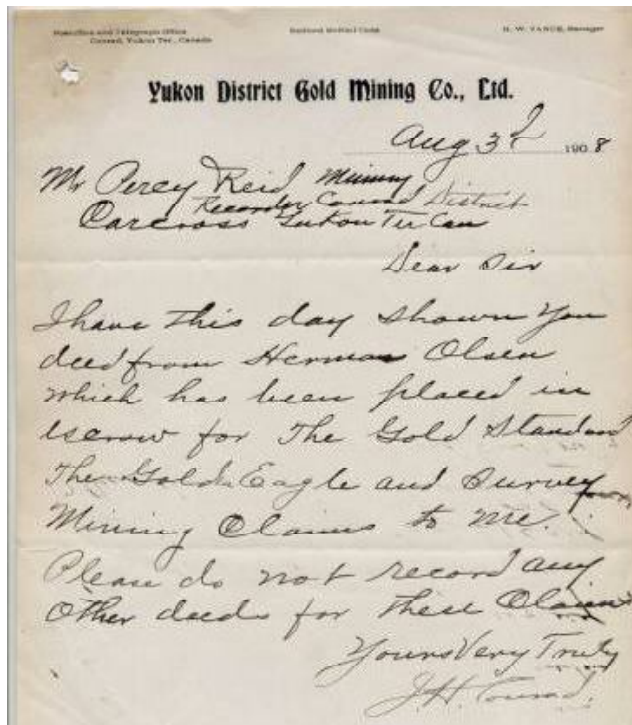 Postoffice and Telegraph Office
Conrad, Yukon Ter., Canada
Bedford McNeil Code
H. W. VANCE, Manager
Yukon District Gold Mining Co., Ltd.
Aug 3d 1908
Mr Percy Reid Mining
Recorder Conrad District
Carcross Yukon Ter Can
Dear Sir
I have this day shown You
deed from Herman Olsen
which has been placed in
escrow for The Gold Standard
The Gold Eagle and Survey
Mining Claims to me.
Please do not record any
other deeds for these Claims
Yours Very Truly
J.H. Conrad